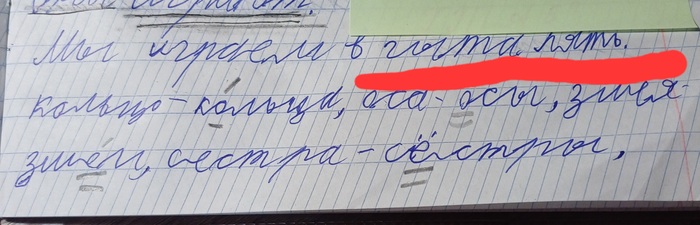 играют.
Мы играем в пять.
кольцо-кольца, оса-осы, змея-
змеи, сестра-сёстры,